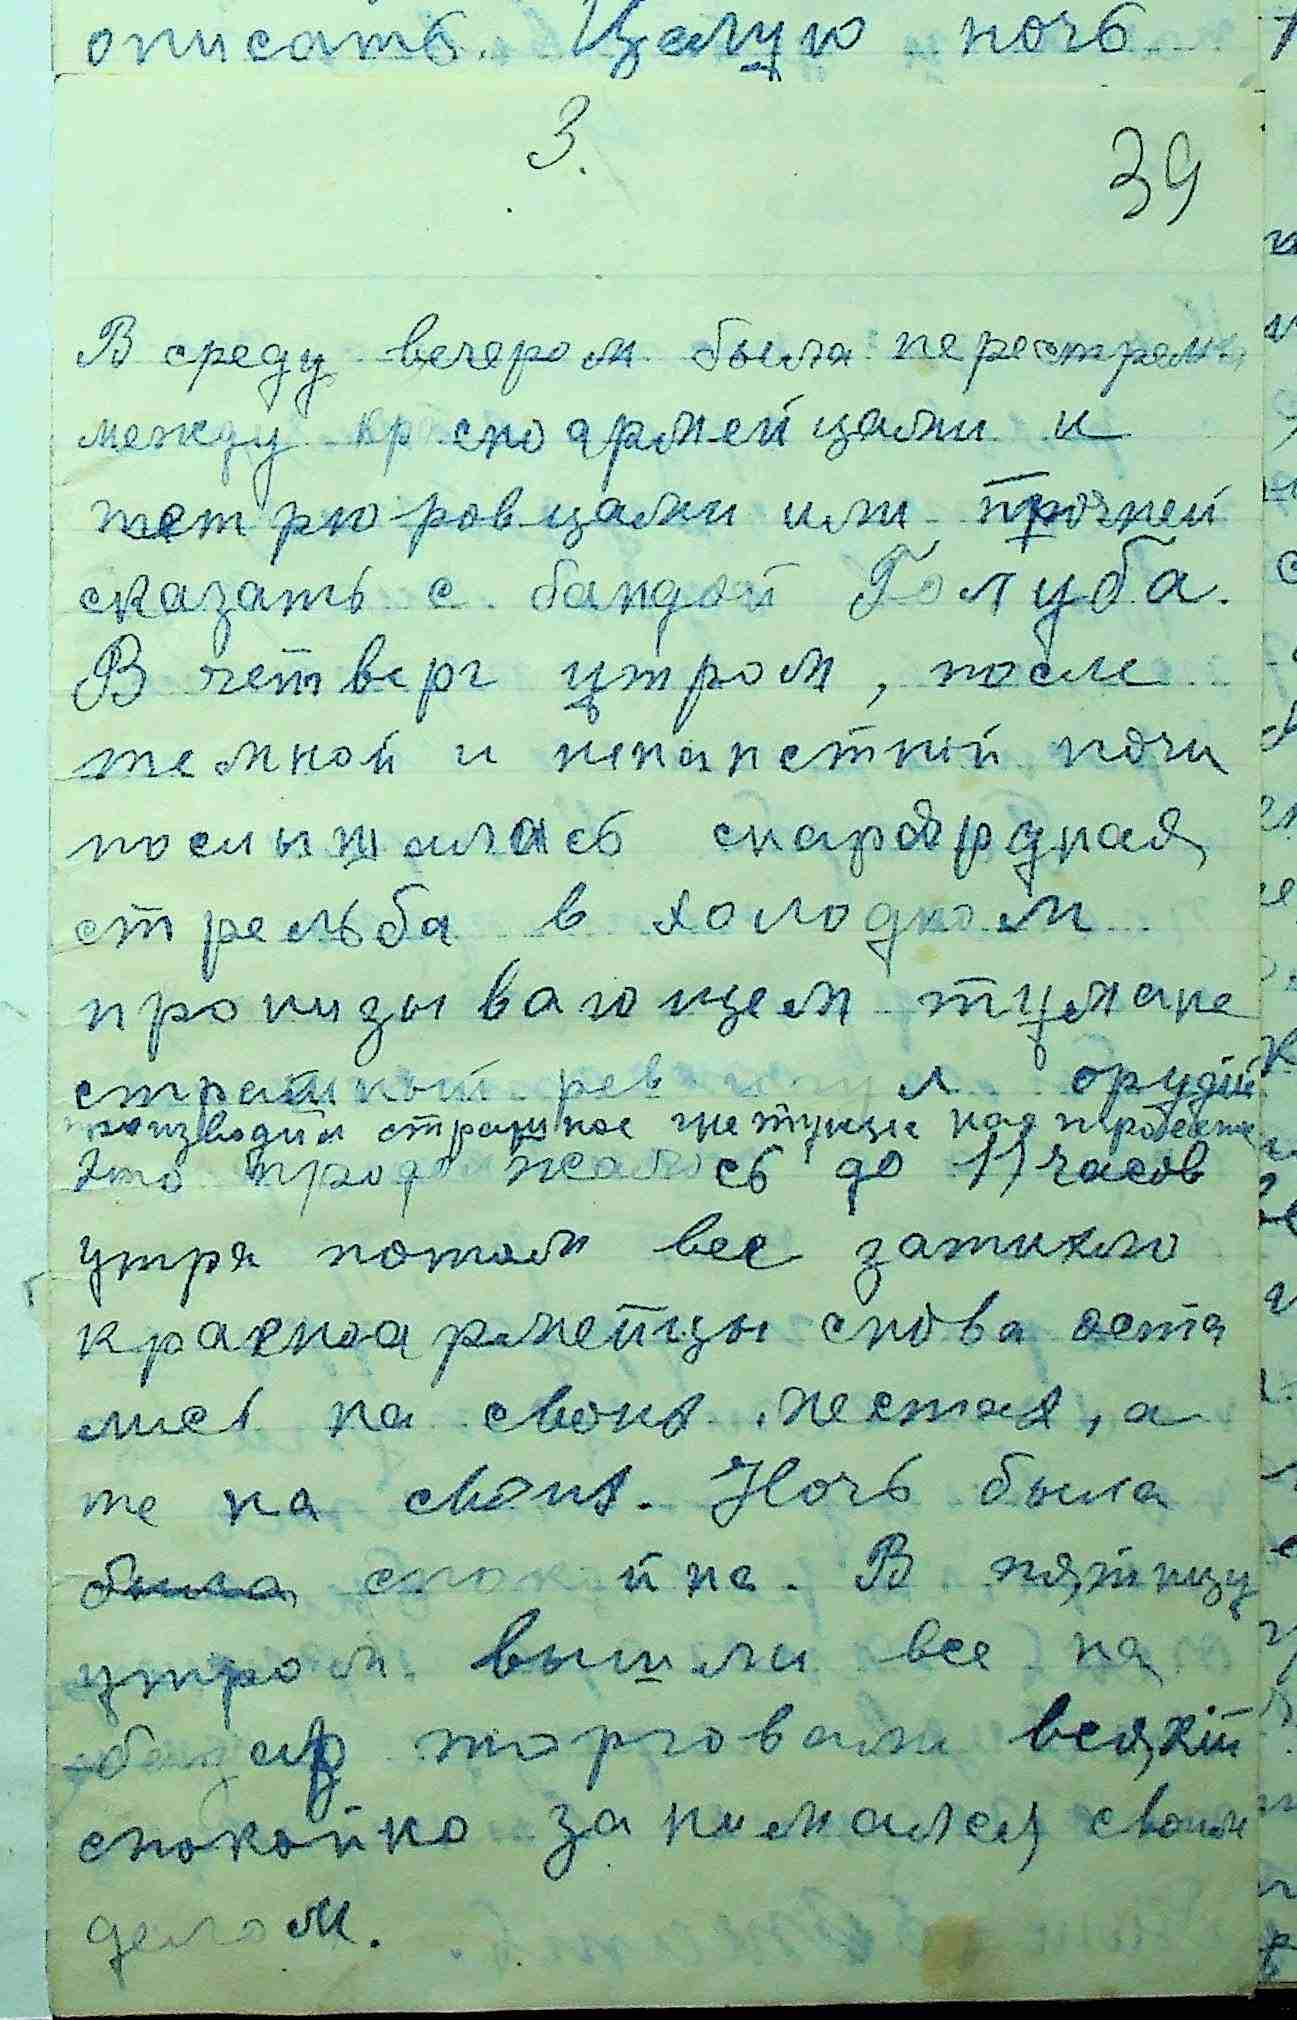 описать. Целую ночь
3.
39
В среду вечером была перестрелка
между красноармейцами и
петлюровцами или прочней
сказать с бандой Голуба.
В четверг утром, после
темной и ненастной ночи
послышалась снарядная
стрельба в холодном
пронизывающем тумане
страшный рев и гул орудий
производил страшное
это продолжалось до 11 часов
утра потом все затихло
красноармейцы снова оста
лись на своих местах, а
те на своих. Ночь была
была спокойна. В пятницу
утром вышли все на
базар торговали всякий
спокойно занимался своим
делом.